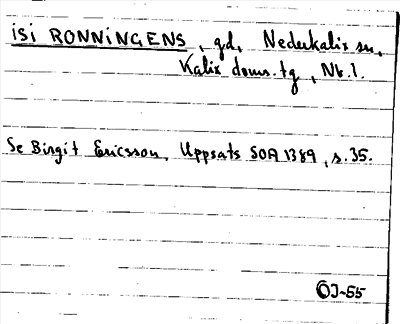 ISI RONNINGENS, gd, Nederkalix sn,
Kalix doms. tg, Nb. l.
Se Birgit Ericsson, Uppsats SOA 1389, s. 35.
OJ-55